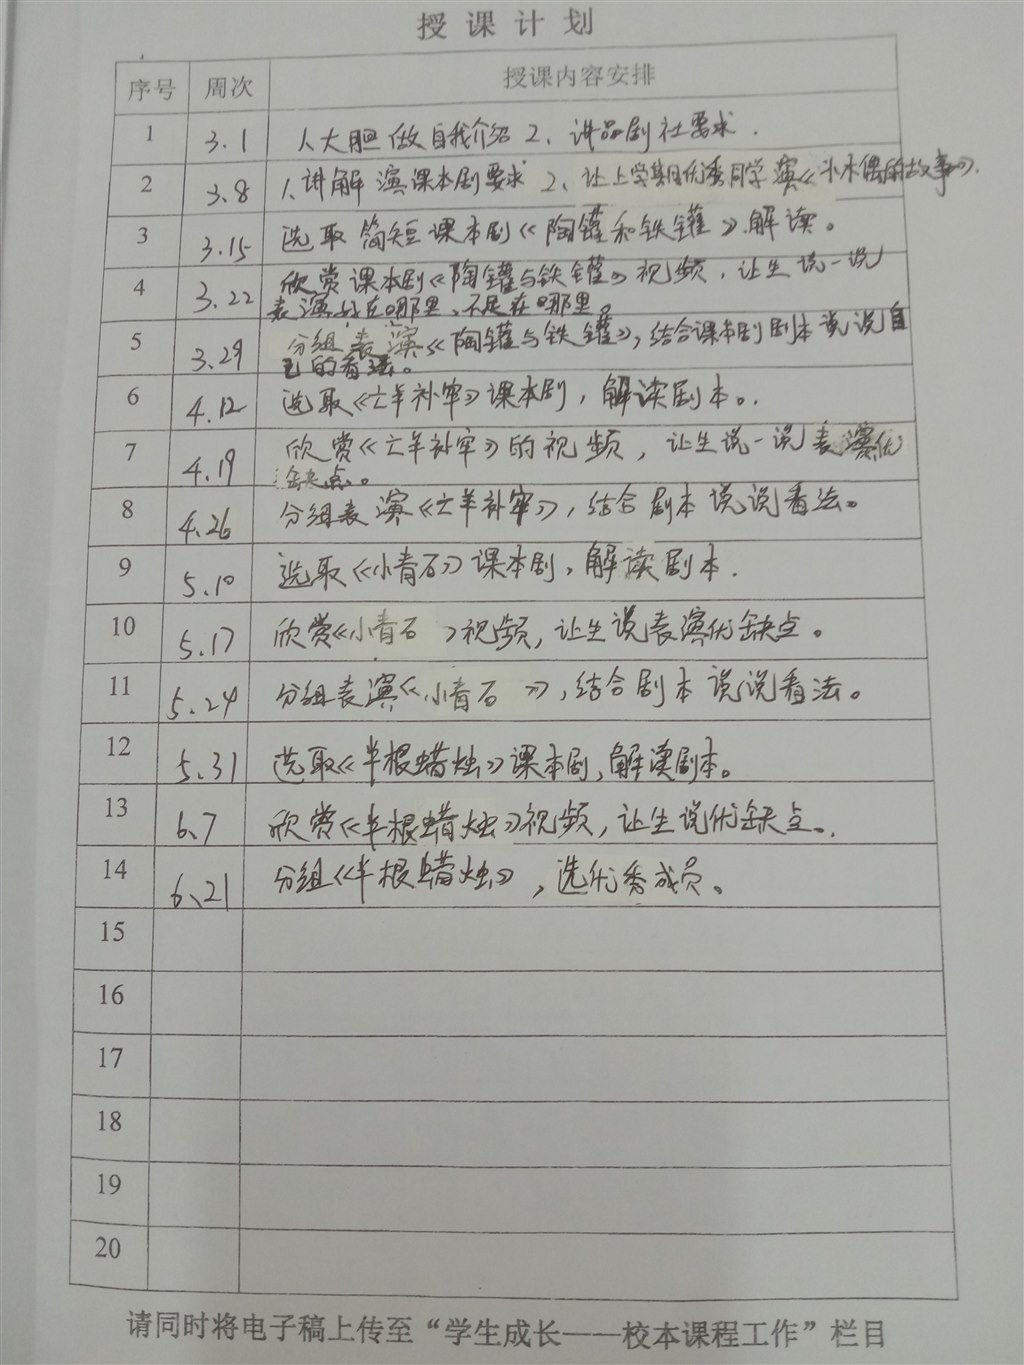 授课计划
序号 周次 授课内容安排
1 3.1 1、大胆做自我介绍 2、讲品剧社要求.
2 3.8 1、讲解演课本剧要求 2、让上学期优秀同学演《小木偶的故事》.
3 3.15 选取简短课本剧《陶罐和铁罐》.解读。
4 3.22 欣赏课本剧《陶罐与铁罐》视频，让生说一说
表演好在哪里、不足在哪里。
5 3.29 分组表演《陶罐与铁罐》，结合课本剧剧本说说自
己的看法。
6 4.12 选取《亡羊补牢》课本剧，解读剧本。.
7 4.19 欣赏《亡羊补牢》的视频，让生说一说表演优
缺点。
8 4.26 分组表演《亡羊补牢》，结合剧本说说看法。
9 5.10 选取《小青石》课本剧，解读剧本.
10 5.17 欣赏《小青石》视频，让生说表演优缺点。
11 5.24 分组表演《小青石》，结合剧本说说看法。
12 5.31 选取《半根蜡烛》课本剧，解读剧本。
13 6.7 欣赏《半根蜡烛》视频，让生说优缺点。.
14 6、21 分组《半根蜡烛》，选优秀成员。
15
16
17
18
19
20
请同时将电子稿上传至“学生成长——校本课程工作”栏目